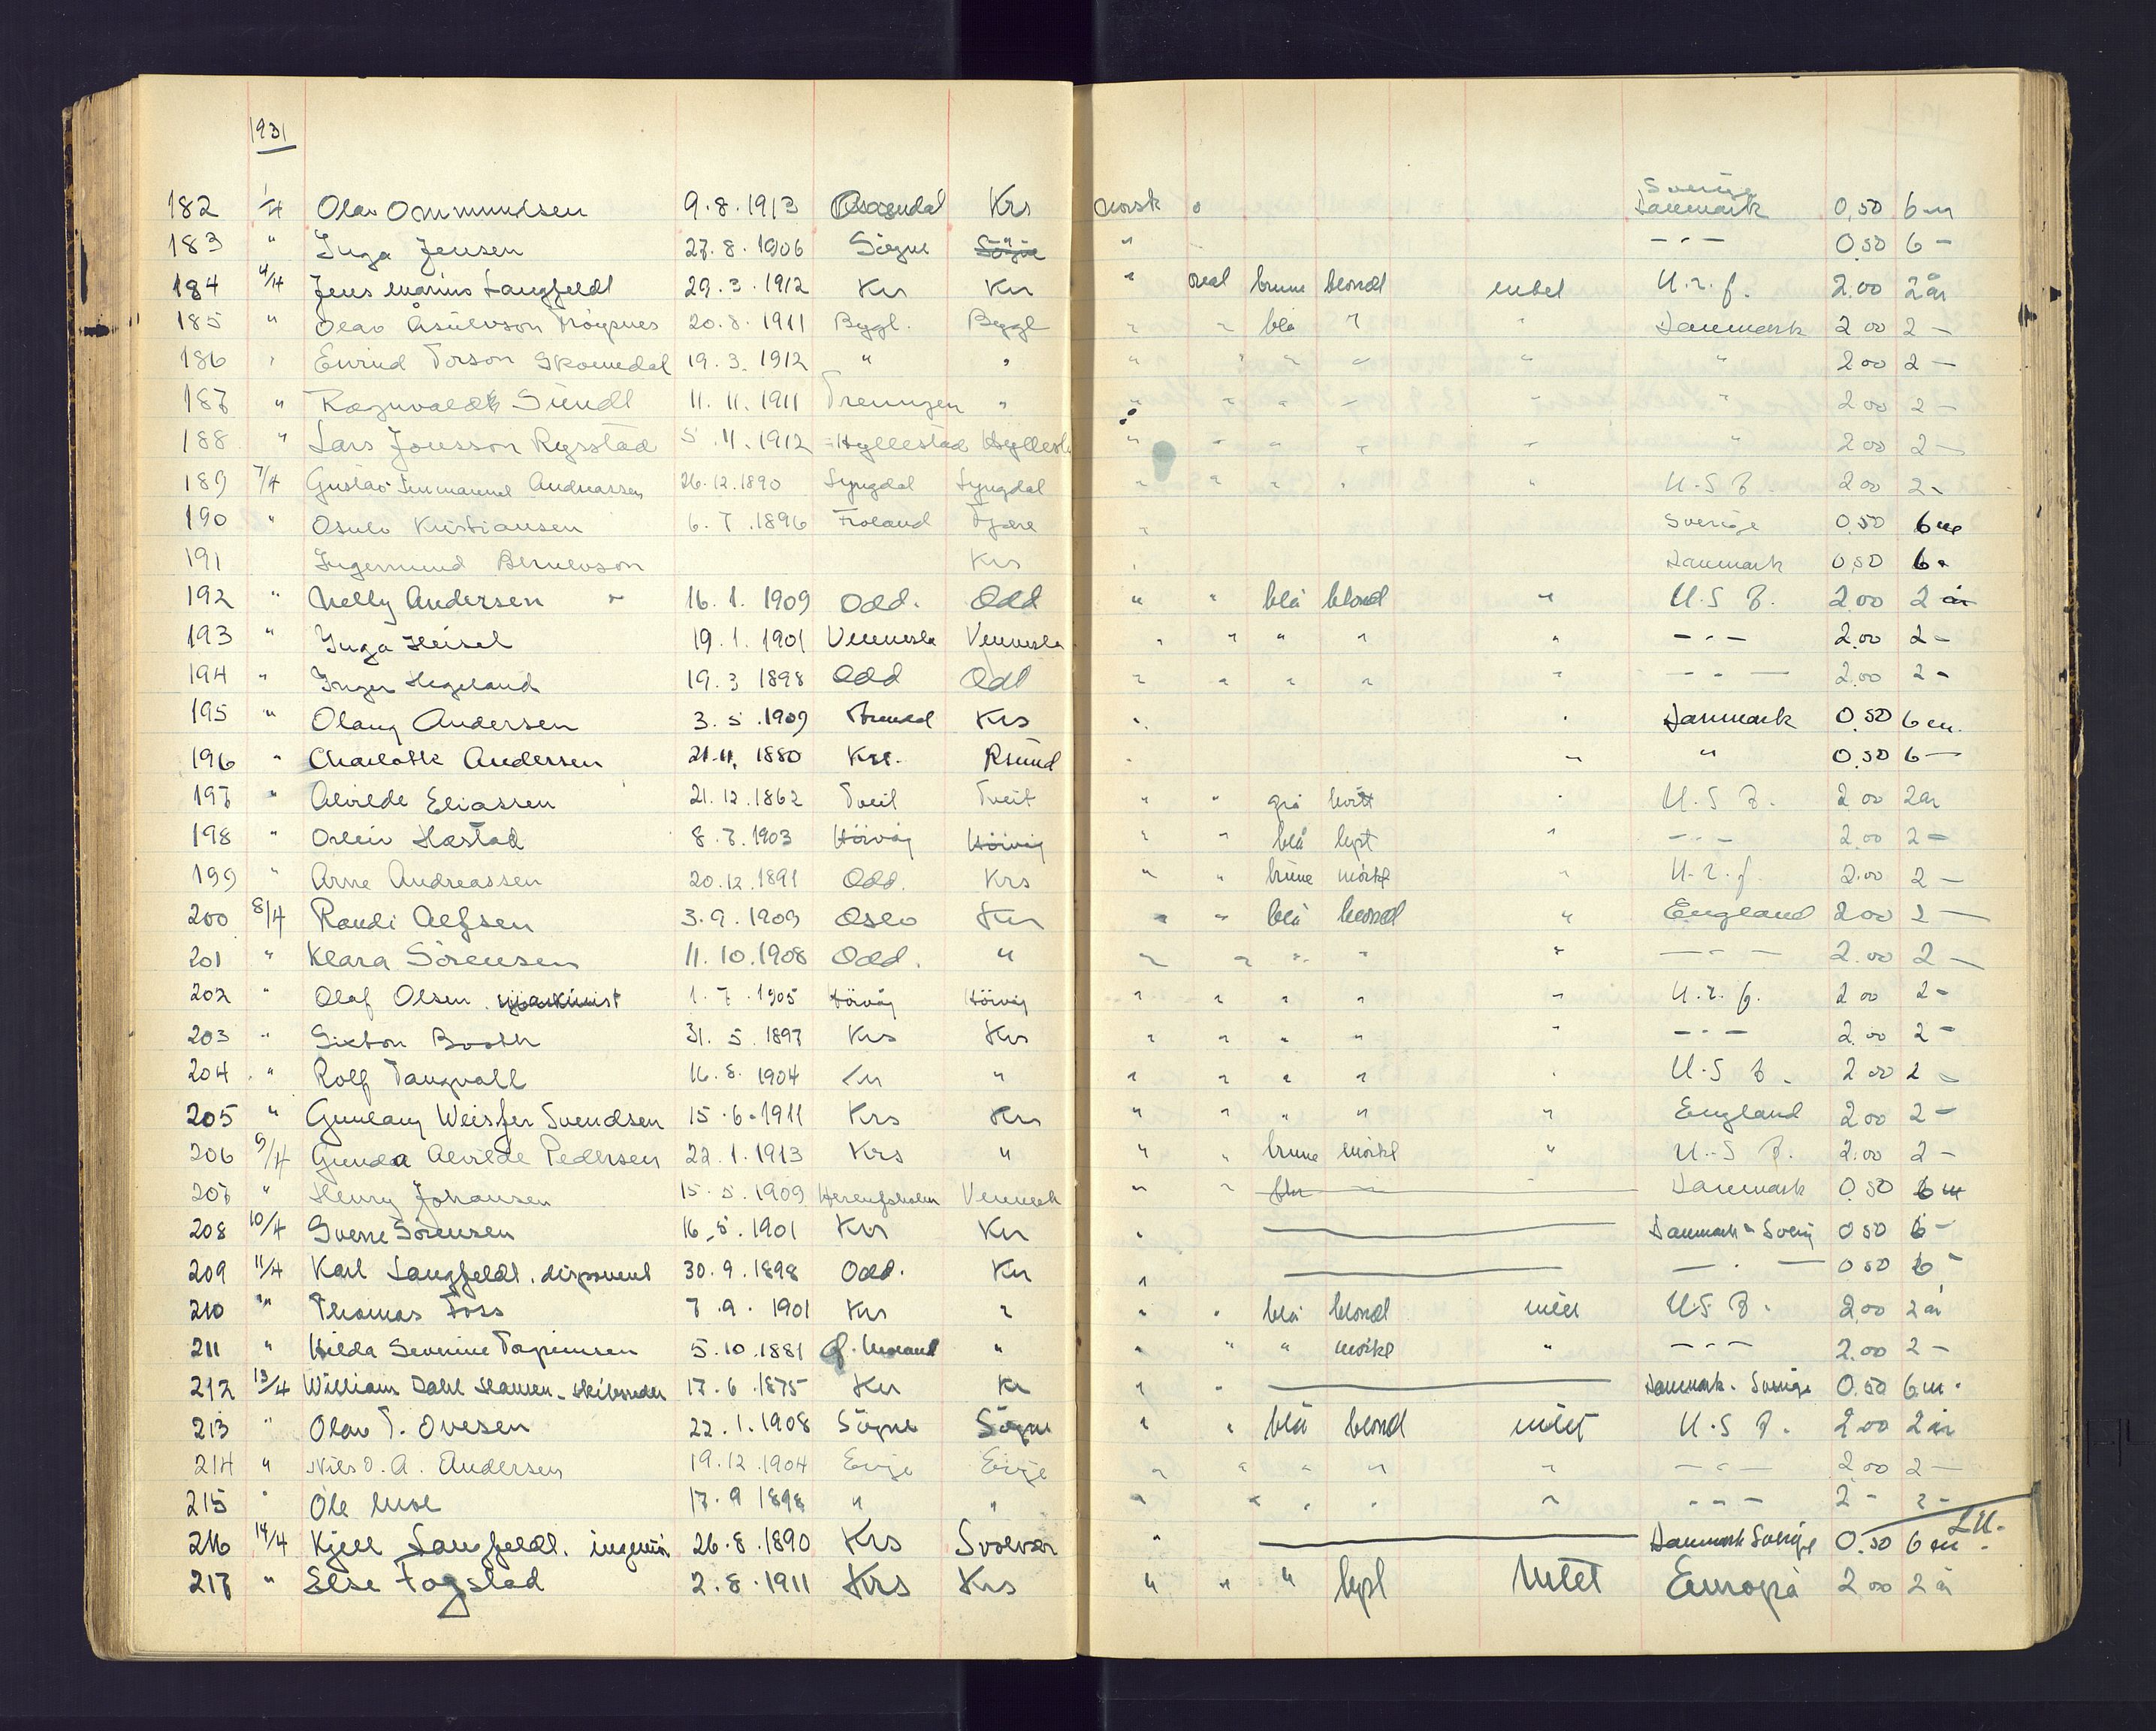 1931
182 1/4 Olav Ommundsen 9.8.1913 Krs norsk o Sverige Danmark 0,50 6 m
183 " Inga Jensen 27.8.1906 Søgne Søgne " - " - 0.50 6 -
184 4/4 Jens Marius Langfeldt 29.3.1912 Kr Kr " oval brune blond intet U.r.f. 2.00 2 år
185 " Olav Åsulvson 20.8.1911 Bygl. Bygl " " blå " " Danmark 2 00 2 -
186 " Eivind Torson Skomedal 19.3.1912 " " " " " " " " 2 00 2 -
187 " Ragnvald Sundt 11.11.1911 Treungen " " " " " " " 2 00 2 -
188 " Lars Jonsson Rysstad 5.11.1912 Hyllestad Hyllest " " " " " " 2 00 2 -
189 7/4 Gustav Emmanuel Andreassen 26.12.1890 Lyngdal Lyngdal " " " " " U.S.A. 2 00 2 -
190 " Osulv Kristiansen 6.7.1896 Froland " Sverige 0.50 6 m
191 Ingemund Krs " Danmark 0,50 6 "
192 " Nelly Andersen " 16.1.1909 Odd. Odd " " blå blond " U.S.A. 2.00 2 år
193 " Inga Heisel 19.1.1901 Vennesla Vennesla " " " " " - " - 2.00 2 -
194 " Inger Hegeland 19.3 1898 Odd Odd " " " " " - " - 2.00 2 -
195 " Olaug Andersen 3.5.1909 Arendal Krs " " Danmark 0.50 6 m.
196 " Charlotte Andersen 21.11.1880 Krs. Rsund " " " 0.50 6 -
197 " Alvilde Eliassen 21.12.1862 Tveit Tveit " " grå hvitt " U.S.A. 2.00 2 år
198 " Hæstad 8.7.1903 Höivåg Höivåg " " blå lyst " - " - 2.00 2 -
199 " Arne Andreassen 20.12.1891 Odd. Krs " " brune mörkt " U.r.f. 2.00 2 -
200 8/4 Randi Alfsen 3.9.1909 Oslo Kr " " blå blond " England 2 00 2 -
201 " Klara Sörensen 11.10.1908 Odd. " " " " " " - " - 2.00 2 -
202 " Olaf Olsen maskinist 1.7.1905 Höivåg Höivåg " " " " " U.r.f. 2 00 2 -
203 " Sixten Booth 31.5.1897 Krs Krs " " " " " - " - 2.00 2 -
204 " Rolf Tangvall 16.8.1904 Kr " " " " " " U.S.A. 2 00 2 -
205 " Gunlaug Weisser Svendsen 15.6.1911 Krs Krs " " " " " England 2 00 2 -
206 9/4 Gunda Alvilde Pedersen 22.1.1913 Krs " " " brune mörkt " U.S.A. 2.00 2 -
207 " Henry Johansen 15.5.1909 Vennesla " " Danmark 0.50 6 m
208 10/4 Sverre Sörensen 16.5.1901 Kr Kr " Danmark - Sverig 0 50 6 -
209 11/4 Karl Langfeldt, disponent 30.9.1898 Odd. Kr " - " - 0 50 6 -
210 " Thomas Foss 7.9.1901 Krs " " " blå blond intet U.S.A. 2,00 2 år
211 " Hilda Severine 5.10.1881 " " " " mörkt " - " - 2.00 2 -
212 13/4 William Dahl Hansen - skibsreder 17.6.1875 Kr Kr " " Danmark - Sverige 0.50 6 m.
213 " Olav T. Ovesen 22.1.1908 Sögne Sögne " " blå blond intet U.S.A. 2 00 2 år
214 " Nils O.A. Andersen 19.12.1904 Evje Evje " " " " " - " - 2 00 2 -
215 " Ole 17.9 1898 " " " " " " " - " - 2 - 2 -
216 14/4 Kjell Langfeldt. ingeniör 26.8.1890 Krs Svolvær " Danmark Sverige 0.50 6 m.
217 " Else Fogstad 2.8.1911 Krs Krs " " " lyst Intet Europa 2 00 2 å